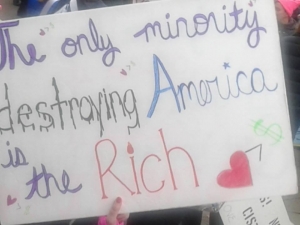 The only minority
destroying America
is
the Rich
$